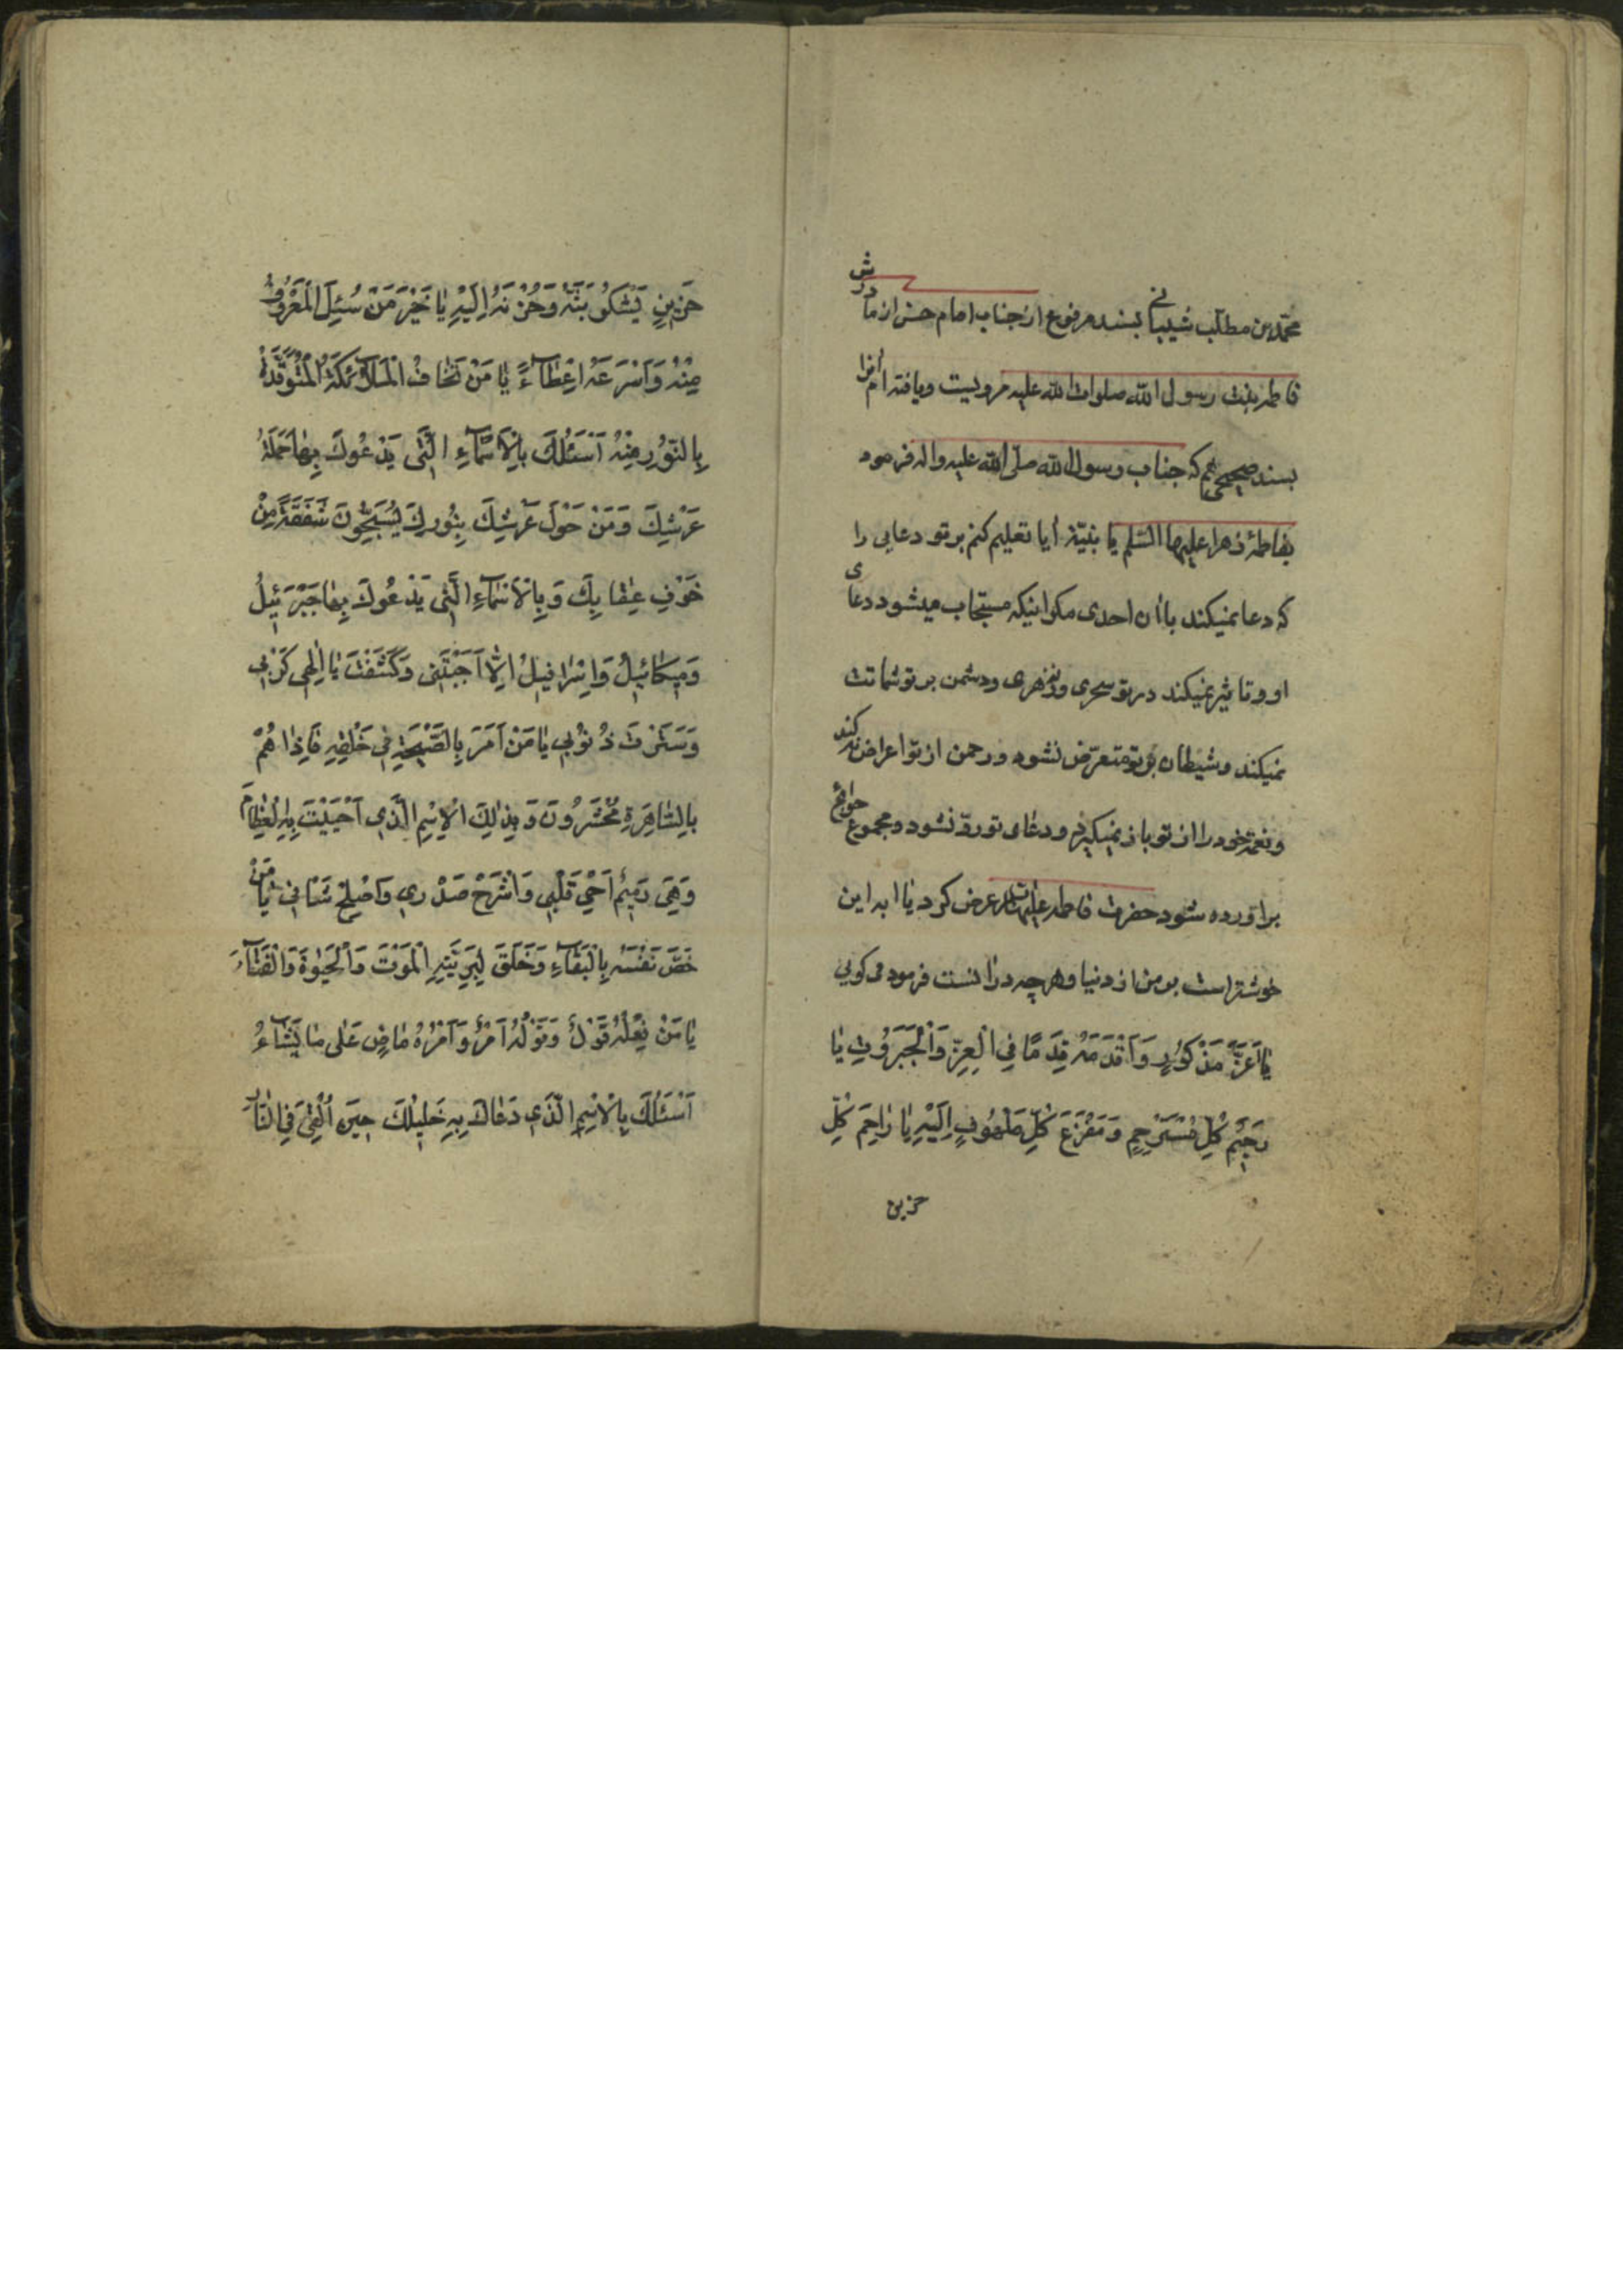 محمّد بن مطلّب شیبانی بسند مرفوع از جناب امام حسن از مادرش
فاطمه بنت رسول الله صلوات الله علیه مرویست و یافته‌ام انرا
بسند صحیحی هم که جناب رسول الله صلّی الله علیه واله فرمود
بفاطمهٔ زهرا علیها السّلم یا بنیّة أیا تعلیم کنم بر تو دعایی را
که دعا نمیکند باان احدی مکر اینکه مستجاب میشود دعای
او و تاثیر نمیکند در تو سحری و زهری و دشمن بر تو شماتت
نمیکند و شیطان بر تو متعرّض نشود و رحمن از تو اعراض نکند
و نعمة خود را از تو باز نمیکیرد و دعای تو ردّ نشود و مجموع حوائج
براورده شود حضرت فاطمه علیها السلام عرض کرد یا ابه این
خوشتر است بر من از دنیا و هر چه در انست فرمود می کویی
يَا اَعَزَّ مَذْكُورٍ وَاَقْدَمَهُ قِدَمًا فِي الْعِزِّ وَالْجَبَرُوتِ يَا
رَحِيمَ كُلِّ مُسْتَرْحِمٍ وَمَفْزَعَ كُلِّ مَلْهُوفٍ اِلَيْهِ يَا رَاحِمَ كُلِّ
حزین
حَزِينٍ يَشْكُو بَثَّهُ وَحُزْنَهُ اِلَيْهِ يَا خَيْرَ مَنْ سُئِلَ الْمَعْرُوفُ
مِنْهُ وَاَسْرَعَهُ اِعْطَاءً يَا مَنْ تَخَافُ الْمَلَائِكَةُ الْمُتَوَقِّدَةُ
بِالنُّورِ مِنْهُ اَسْئَلُكَ بِالْاَسْمَاءِ الَّتِي يَدْعُوكَ بِهَا حَمَلَةُ
عَرْشِكَ وَمَنْ حَوْلَ عَرْشِكَ بِنُورِكَ يُسَبِّحُونَ شَفَقَةً مِنْ
خَوْفِ عِقَابِكَ وَبِالْاَسْمَاءِ الَّتِي يَدْعُوكَ بِهَا جَبْرَئِيلُ
وَمِيكَائِيلُ وَاِسْرَافِيلُ اِلَّا اَجَبْتَنِي وَكَشَفْتَ يَا اِلٰهِي كُرْبَتِي
وَسَتَرْتَ ذُنُوبِي يَا مَنْ اَمَرَ بِالصَّيْحَةِ فِي خَلْقِهِ فَاِذَا هُمْ
بِالسَّاهِرَةِ مُحْشَرُونَ وَبِذٰلِكَ الْاِسْمِ الَّذِي اَحْيَيْتَ بِهِ الْعِظَامَ
وَهِيَ رَمِيمٌ اَحْيِ قَلْبِي وَاشْرَحْ صَدْرِي وَاَصْلِحْ شَانِي يَا مَنْ
خَصَّ نَفْسَهُ بِالْبَقَاءِ وَخَلَقَ لِبَرِيَّتِهِ الْمَوْتَ وَالْحَيٰوةَ وَالْفَنَاءَ
يَا مَنْ فِعْلُهُ قَوْلٌ وَقَوْلُهُ اَمْرٌ وَاَمْرُهُ مَاضٍ عَلَى مَا يَشَاءُ
اَسْئَلُكَ بِالْاِسْمِ الَّذِي دَعَاكَ بِهِ خَلِيلُكَ حِينَ اُلْقِيَ فِي النَّارِ